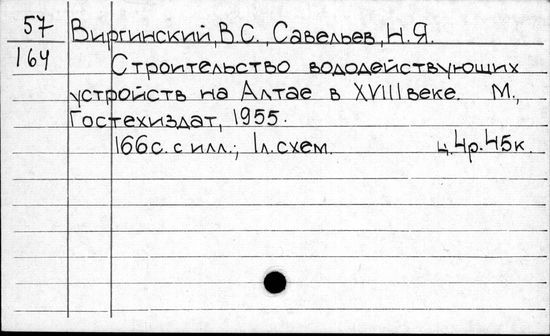 57 Виргинский, В.С., Савельев, Н.Я.
164 Строительство вододействующих
устройств на Алтае в XVIII веке. М.,
Гостехиздат, 1955.
166с. с илл.; 1л. схем. ц. 4р. 45к.